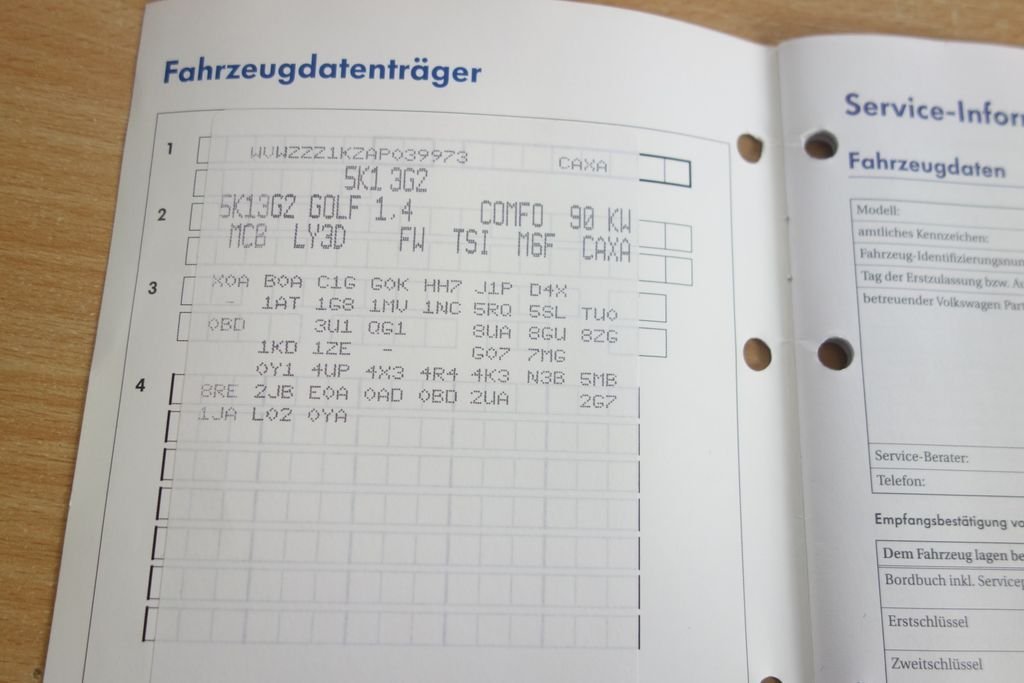 Fahrzeugdatenträger
1 WVWZZZ1KZAP039973 CAXA
5K13G2
2 5K13G2 GOLF 1.4 COMFO 90 KW
MCB LY3D FW TSI M6F CAXA
3 X0A B0A C1G G0K HH7 J1P D4X
- 1AT 1G8 1MV 1NC 5RQ 5SL TU0
0BD 3U1 QG1 8UA 8GU 8ZG
1KD 1ZE - G07 7MG
0Y1 4UP 4X3 4R4 4K3 N3B 5MB
4 8RE 2JB E0A 0AD 0BD 2UA 2G7
1JA L02 0YA
Service-Infor
Fahrzeugdaten
Modell:
amtliches Kennzeichen:
Fahrzeug-Identifizierungsnum
Tag der Erstzulassung bzw. Au
betreuender Volkswagen Part
Service-Berater:
Telefon:
Empfangsbestätigung vo
Dem Fahrzeug lagen be
Bordbuch inkl. Servicep
Erstschlüssel
Zweitschlüssel